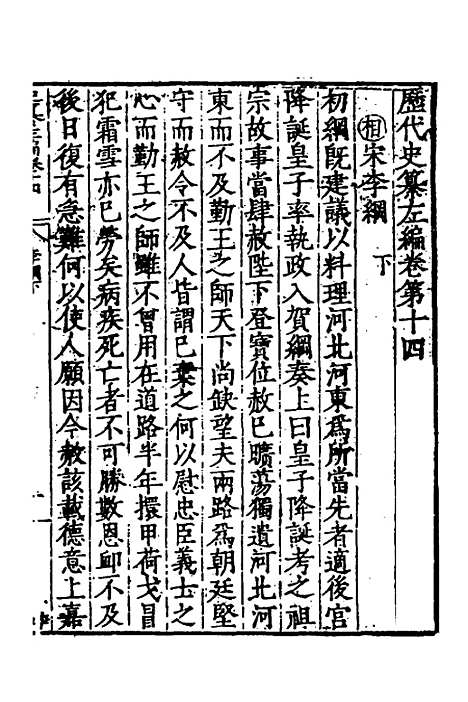 歷代史纂左編卷第十四
相宋李綱下
初綱既建議以料理河北河東爲所當先者適後宮
降誕皇子率執政入賀綱奏上曰皇子降誕考之祖
宗故事當肆赦陛下登寶位赦已曠蕩獨遺河北河
東而不及勤王之師天下尚缺望夫兩路爲朝廷堅
守而赦令不及人皆謂已棄之何以慰忠臣義士之
心而勤王之師雖不曾用在道路半年擐甲荷戈冒
犯霜雪亦已勞矣病疾死亡者不可勝數恩卹不及
後日復有急難何以使人願因今赦該載德意上嘉